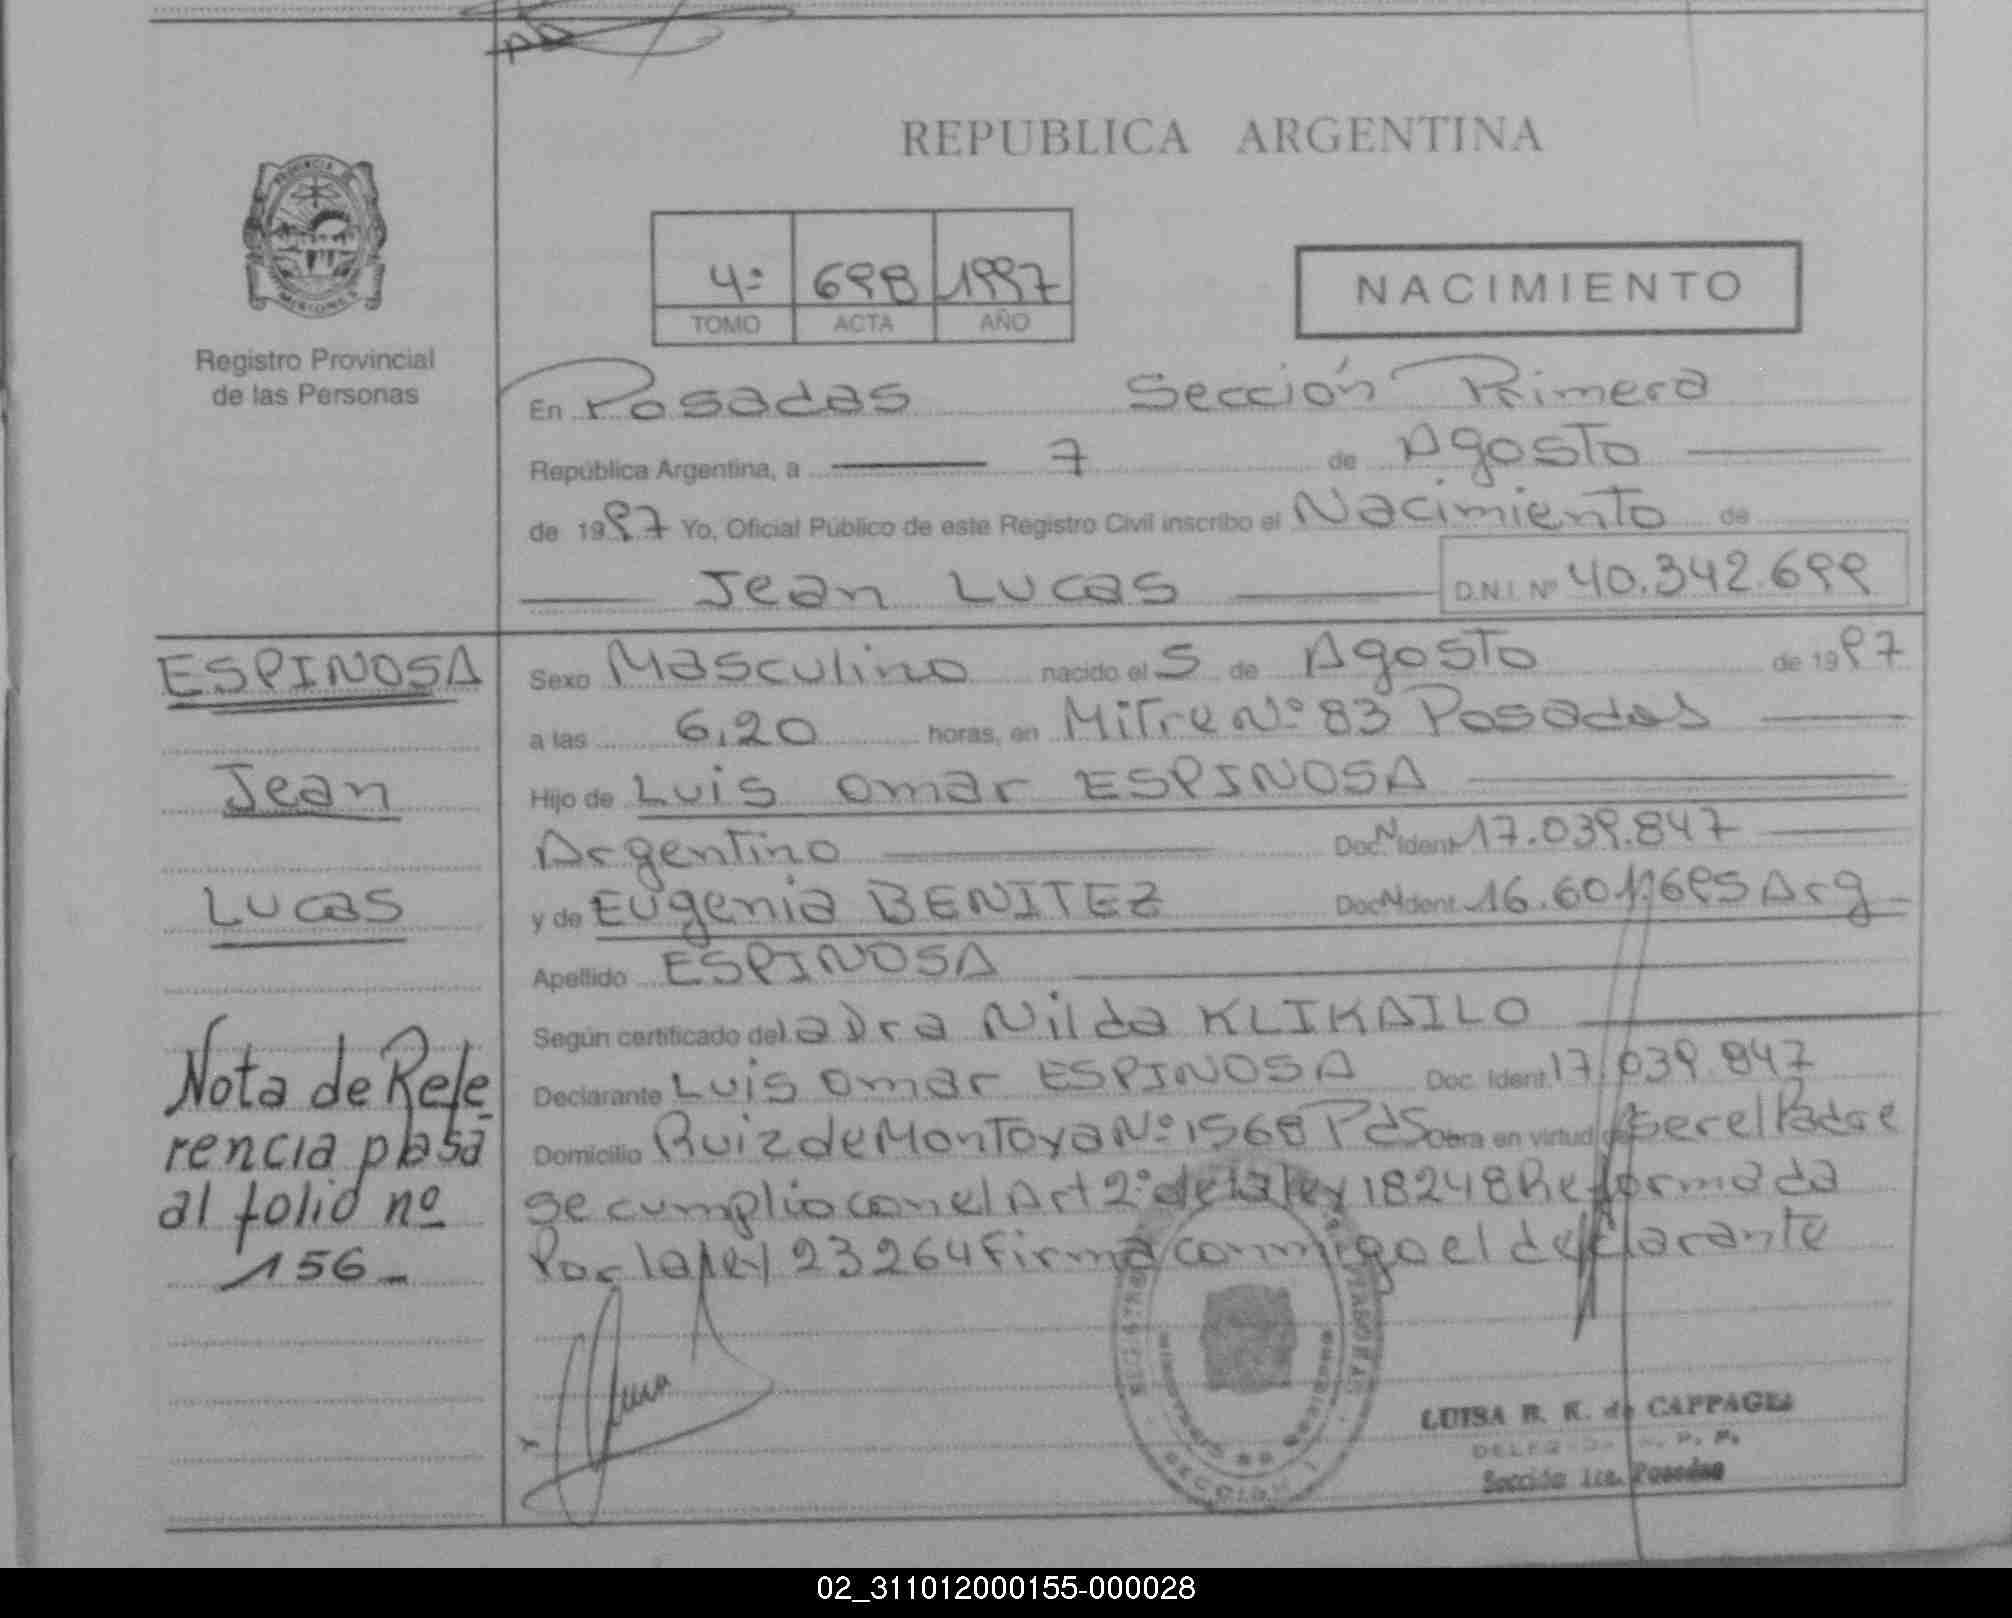 REPUBLICA ARGENTINA
PROVINCIA
MISIONES
Registro Provincial
de las Personas
4º 698 1997
TOMO ACTA AÑO
NACIMIENTO
En Posadas Sección Primera
República Argentina, a 7 de Agosto
de 1997 Yo, Oficial Público de este Registro Civil inscribo el Nacimiento de
Jean Lucas D.N.I. Nº 40.342.699
ESPINOSA
Jean
Lucas
Nota de Refe
rencia pasa
al folio nº
156
Sexo Masculino nacido el 5 de Agosto de 1997
a las 6,20 horas, en Mitre Nº 83 Posadas
Hijo de Luis Omar ESPINOSA
Argentino Doc. N Ident. 17.039.847
y de Eugenia BENITEZ Doc. N Ident. 16.601.695 Arg
Apellido ESPINOSA
Según certificado de la Dra Nilda KLIKAILO
Declarante Luis Omar ESPINOSA Doc. Ident. 17.039.847
Domicilio Ruiz de Montoya Nº 1568 Pds Obra en virtud de ser el Padre
se cumplio con el Art 2º de la ley 18248 Reformada
Por la ley 23264 firma conmigo el declarante
LUISA R. K. de CAPPAGLI
Sección 1ra. Posadas
02_311012000155-000028